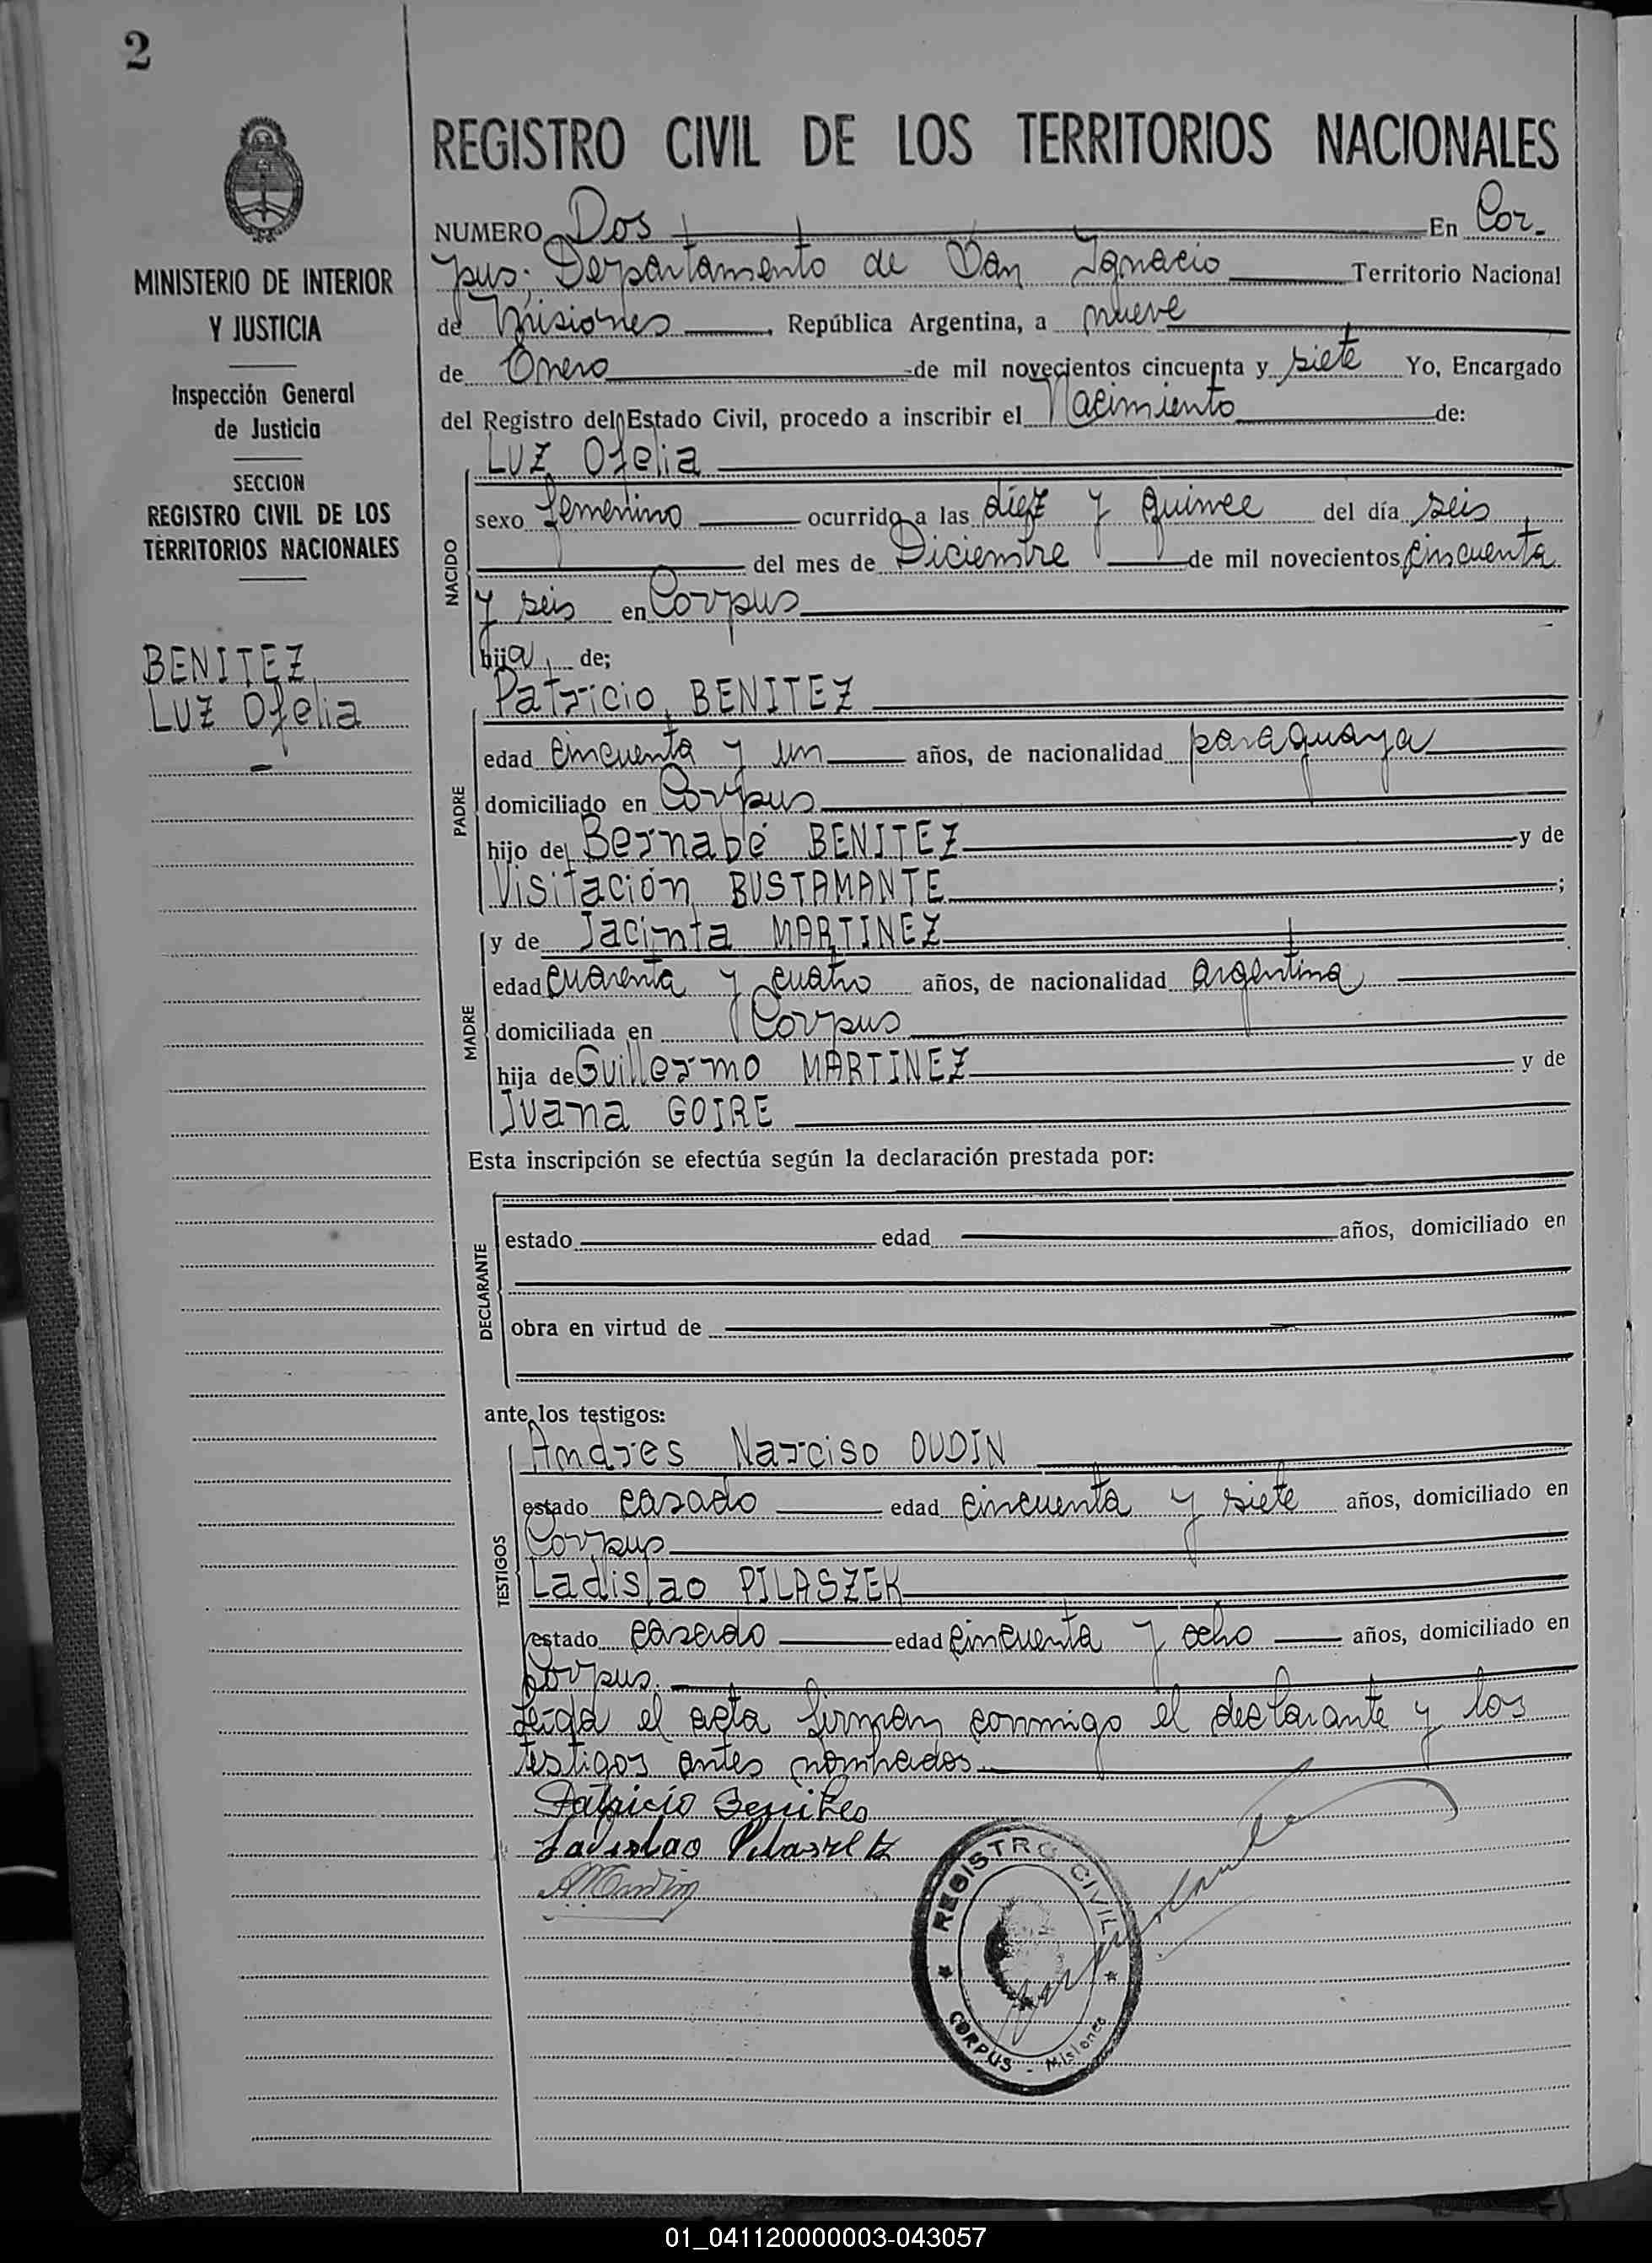 2
MINISTERIO DE INTERIOR
Y JUSTICIA
Inspección General
de Justicia
SECCION
REGISTRO CIVIL DE LOS
TERRITORIOS NACIONALES
BENITEZ
LUZ Ofelia
REGISTRO CIVIL DE LOS TERRITORIOS NACIONALES
NUMERO Dos En Cor-
pus; Departamento de San Ignacio Territorio Nacional
de Misiones, República Argentina, a nueve
de Enero de mil novecientos cincuenta y siete Yo, Encargado
del Registro del Estado Civil, procedo a inscribir el Nacimiento de:
NACIDO
LUZ Ofelia
sexo femenino ocurrido a las diez y quince del día seis
del mes de Diciembre de mil novecientos cincuenta
y seis en Corpus
hija de;
PADRE
Patricio BENITEZ
edad cincuenta y un años, de nacionalidad paraguaya
domiciliado en Corpus
hijo de Bernabé BENITEZ y de
Visitación BUSTAMANTE;
MADRE
y de Jacinta MARTINEZ
edad cuarenta y cuatro años, de nacionalidad argentina
domiciliada en Corpus
hija de Guillermo MARTINEZ y de
Juana GOIRE
Esta inscripción se efectúa según la declaración prestada por:
DECLARANTE
estado edad años, domiciliado en
obra en virtud de
ante los testigos:
TESTIGOS
Andres Narciso OUDIN
estado casado edad cincuenta y siete años, domiciliado en
Corpus
Ladislao PILASZEK
estado casado edad cincuenta y ocho años, domiciliado en
Corpus.
Leída el acta firman conmigo el declarante y los
testigos antes nombrados.
Patricio Benites
Ladislao Pilaszek
REGISTRO CIVIL
CORPUS - Misiones
01_041120000003-043057